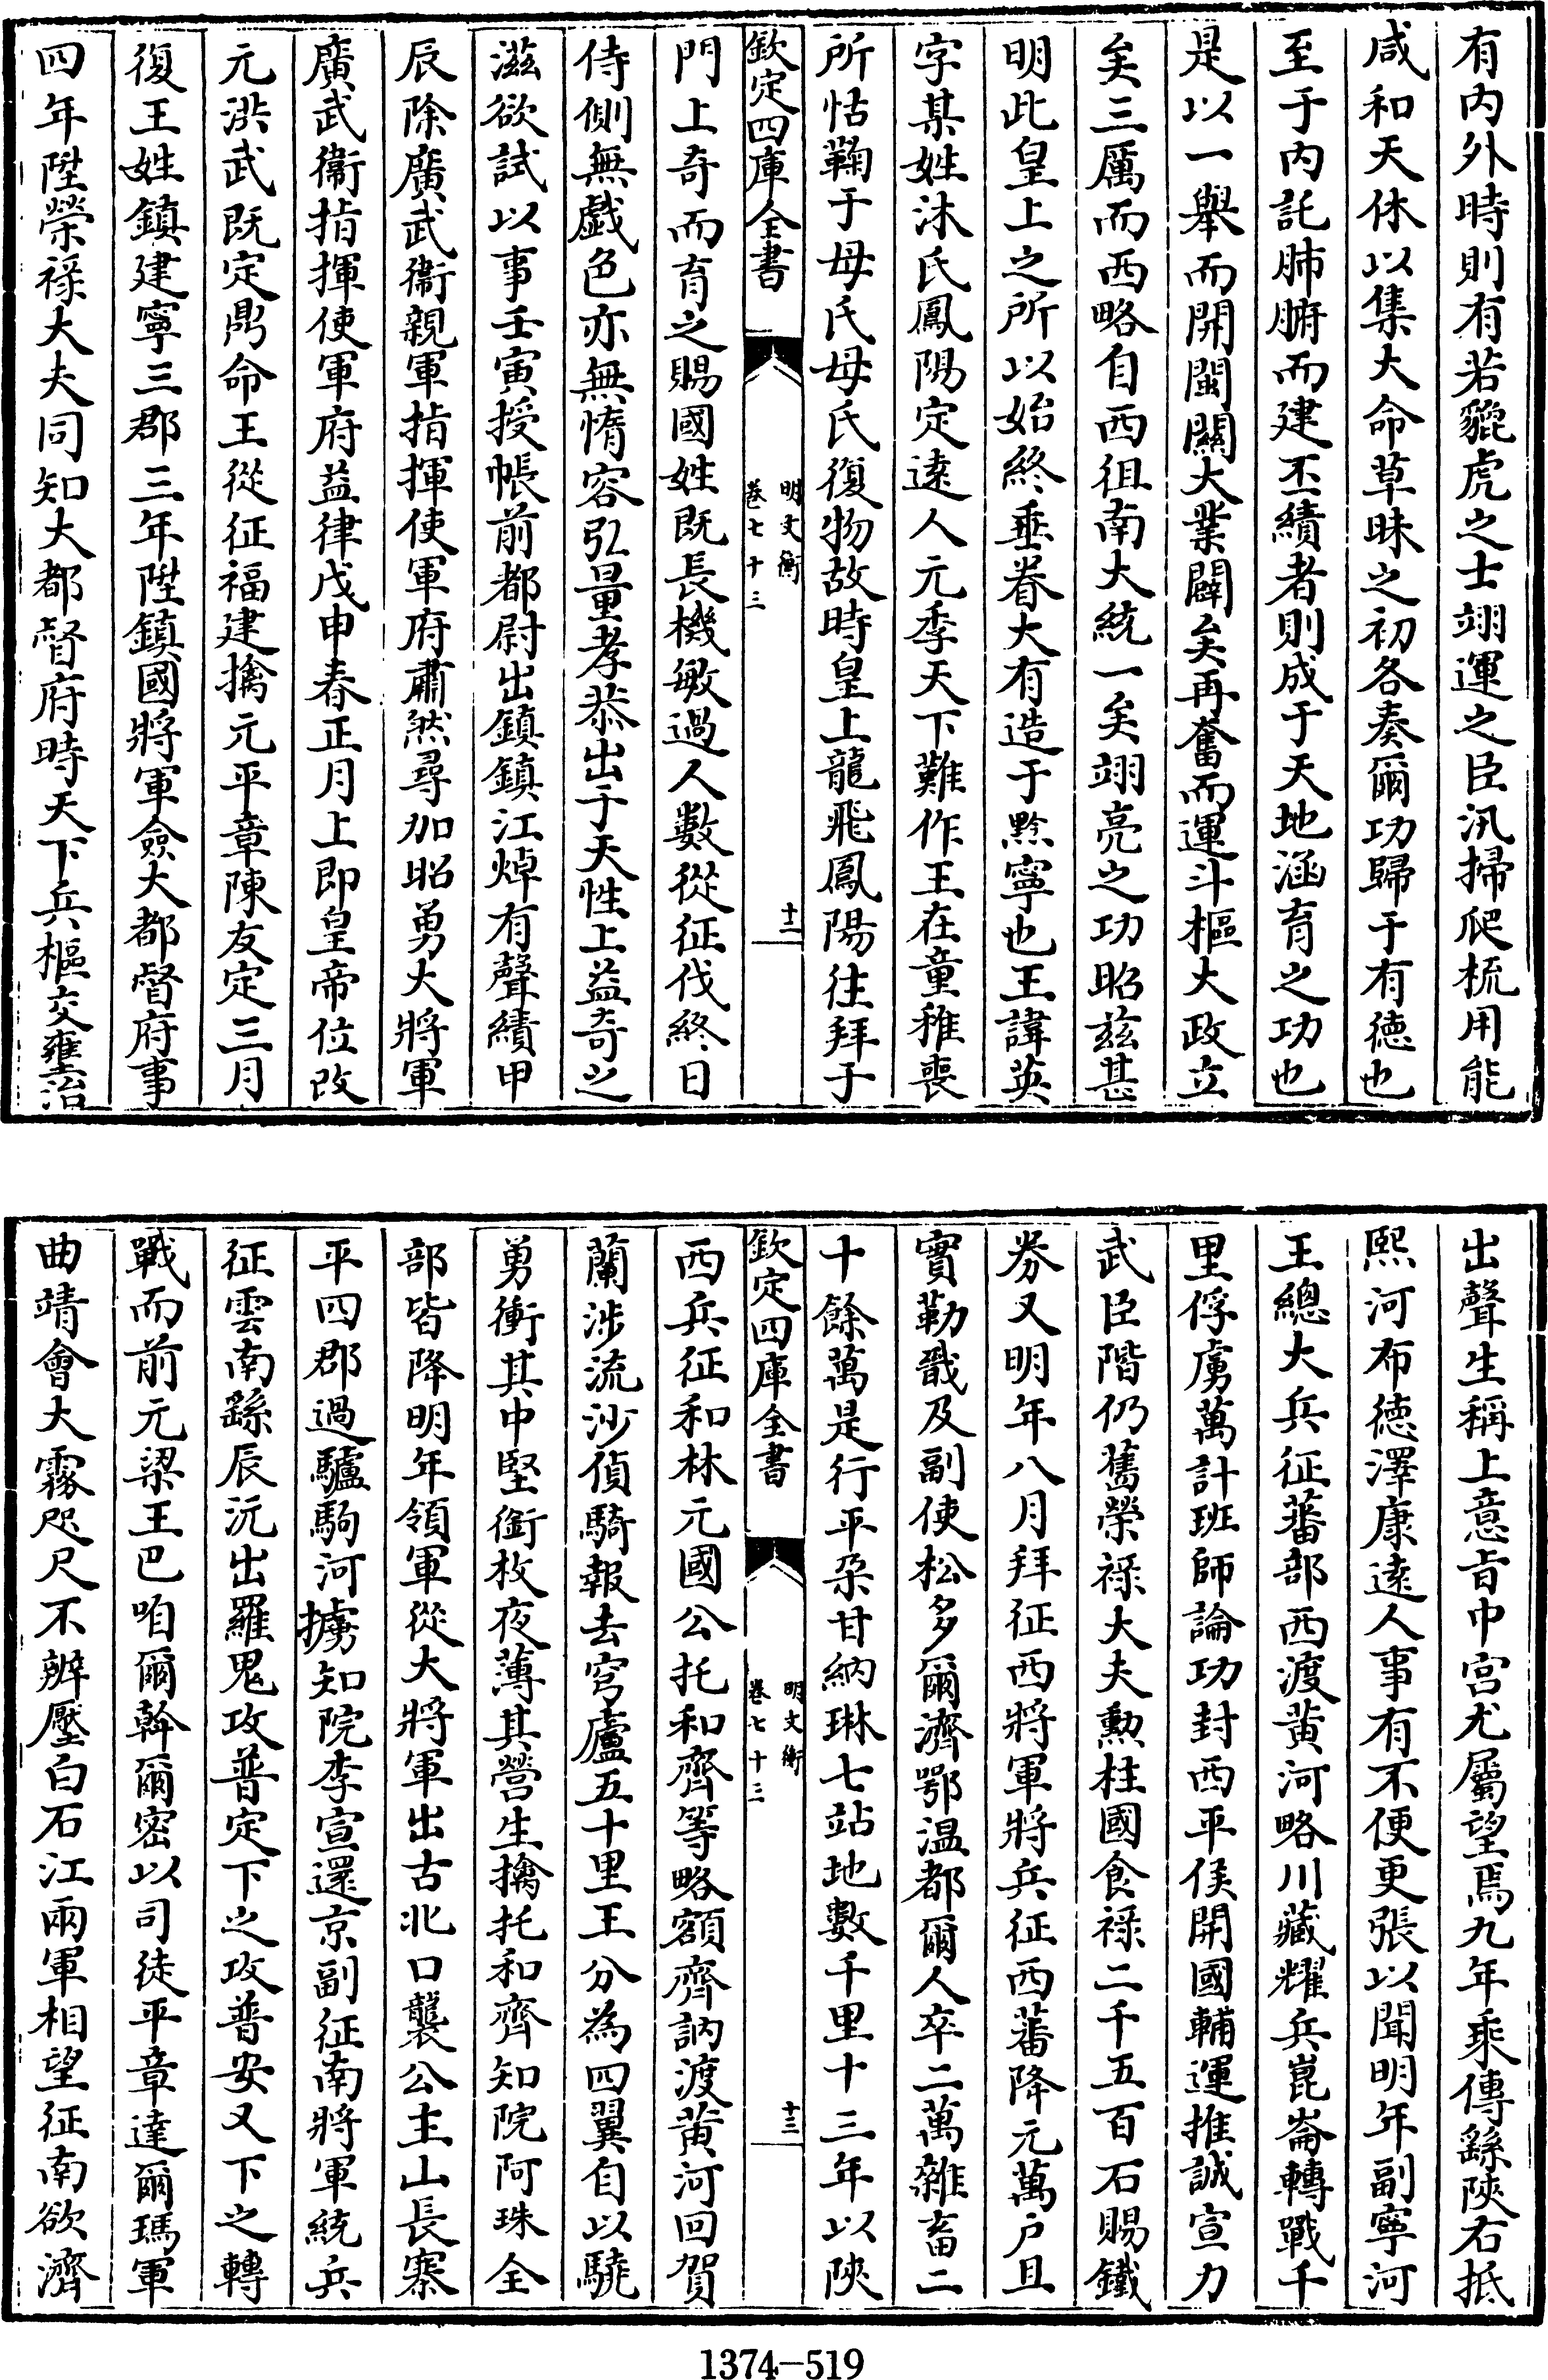 有内外時則有若貔虎之士翊運之臣汛掃爬梳用能
咸和天休以集大命草昧之初各奏爾功歸于有徳也
至于内託肺腑而建丕績者則成于天地涵育之功也
是以一舉而開閩闗大業闢矣再奮而運斗樞大政立
矣三厲而西略自西徂南大統一矣翊亮之功昭兹甚
明此皇上之所以始終垂眷大有造于黔寧也王諱英
字某姓沐氏鳳陽定逺人元季天下難作王在童稚喪
所怙鞠于母氏母氏復物故時皇上龍飛鳳陽往拜于
欽定四庫全書
明文衡
卷七十三
十二
門上奇而育之賜國姓既長機敏過人數從征伐終日
侍側無戯色亦無惰容弘量孝恭出于天性上益奇之
滋欲試以事壬寅授帳前都尉出鎮鎮江焯有聲績甲
辰除廣武衞親軍指揮使軍府肅然尋加昭勇大將軍
廣武衞指揮使軍府益律戊申春正月上即皇帝位改
元洪武既定鼎命王從征福建擒元平章陳友定三月
復王姓鎮建寧三郡三年陞鎮國將軍僉大都督府事
四年陞榮祿大夫同知大都督府時天下兵樞交壅治
出聲生稱上意㫖中宫尤屬望焉九年乘傳繇陜右抵
熙河布徳澤康逺人事有不便更張以聞明年副寧河
王總大兵征蕃部西渡黄河略川藏耀兵崑崙轉戰千
里俘虜萬計班師論功封西平侯開國輔運推誠宣力
武臣階仍舊榮祿大夫勲柱國食祿二千五百石賜鐵
劵又明年八月拜征西將軍將兵征西蕃降元萬户且
實勒戬及副使松多爾濟鄂温都爾人卒二萬雜畜二
十餘萬是行平朶甘納琳七站地數千里十三年以陜
欽定四庫全書
明文衡
卷七十三
十三
西兵征和林元國公托和齊等略額齊訥渡黄河回賀
蘭涉流沙偵騎報去穹廬五十里王分為四翼自以驍
勇衝其中堅銜枚夜薄其營生擒托和齊知院阿珠全
部皆降明年領軍從大將軍出古北口襲公主山長寨
平四郡過驢駒河擄知院李宣還京副征南將軍統兵
征雲南繇辰沅出羅鬼攻普定下之攻普安又下之轉
戰而前元梁王巴咱爾斡爾密以司徒平章達爾瑪軍
曲靖會大霧咫尺不辨壓白石江兩軍相望征南欲濟
1374—519